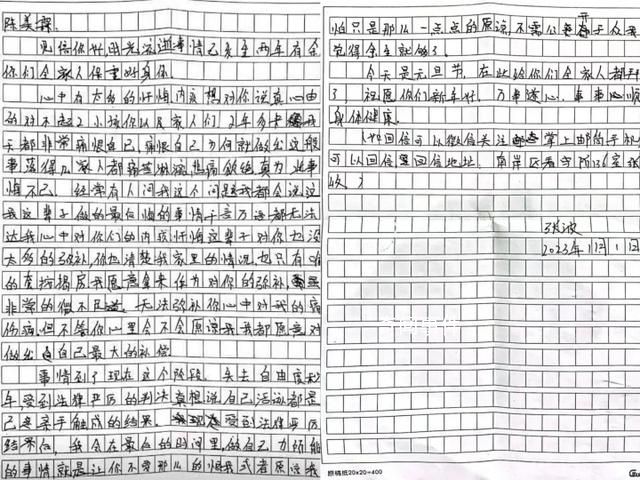 陈美霖:
见信你好,时光流逝事情已发生两年有余
你们全家人保重好身体。
心中有太多的忏悔内疚想对你说真心由
的对不起2小孩你以及家人们
天都非常痛恨自己,痛恨自己为何就做出这般
事落得几家人都
悔不已 经常有人问我这个问题我都会说这
我这辈子做的最后悔的事情千言万语都无法
达我心中对你们的内疚忏悔这辈子对你也没
太多的弥补,你也清楚我家里的情况,也只有唯
的 房我愿意拿来作为对你的弥补,
非常的微不足道 无法弥补你心中对我的痛
伤痛,但不管你心里会不会原谅我我都愿意对
做出自己最大的补偿
事情到了现在这个阶段,失去自由
年,受到法律严厉的判决真想说自己活该都是
己亲手触成的结果, 受到法律严厉
结果后,我会在最后的时间里,做自己力所能
的事情就是让你不要那么的恨我或者原谅我
怕只是那么一点点的原谅,不需公开于众我
觉得余生就够了。
今天是元旦节,在此给你们全家人都拜
了 祝愿你们新年好, 万事遂心, 事事心顺
身体健康。
(如回信可以微信关注 掌上邮局手机
可以回信,回信地址:南岸区看守所136室张
收)
张波
2023年1月1日
原稿纸20×20=400